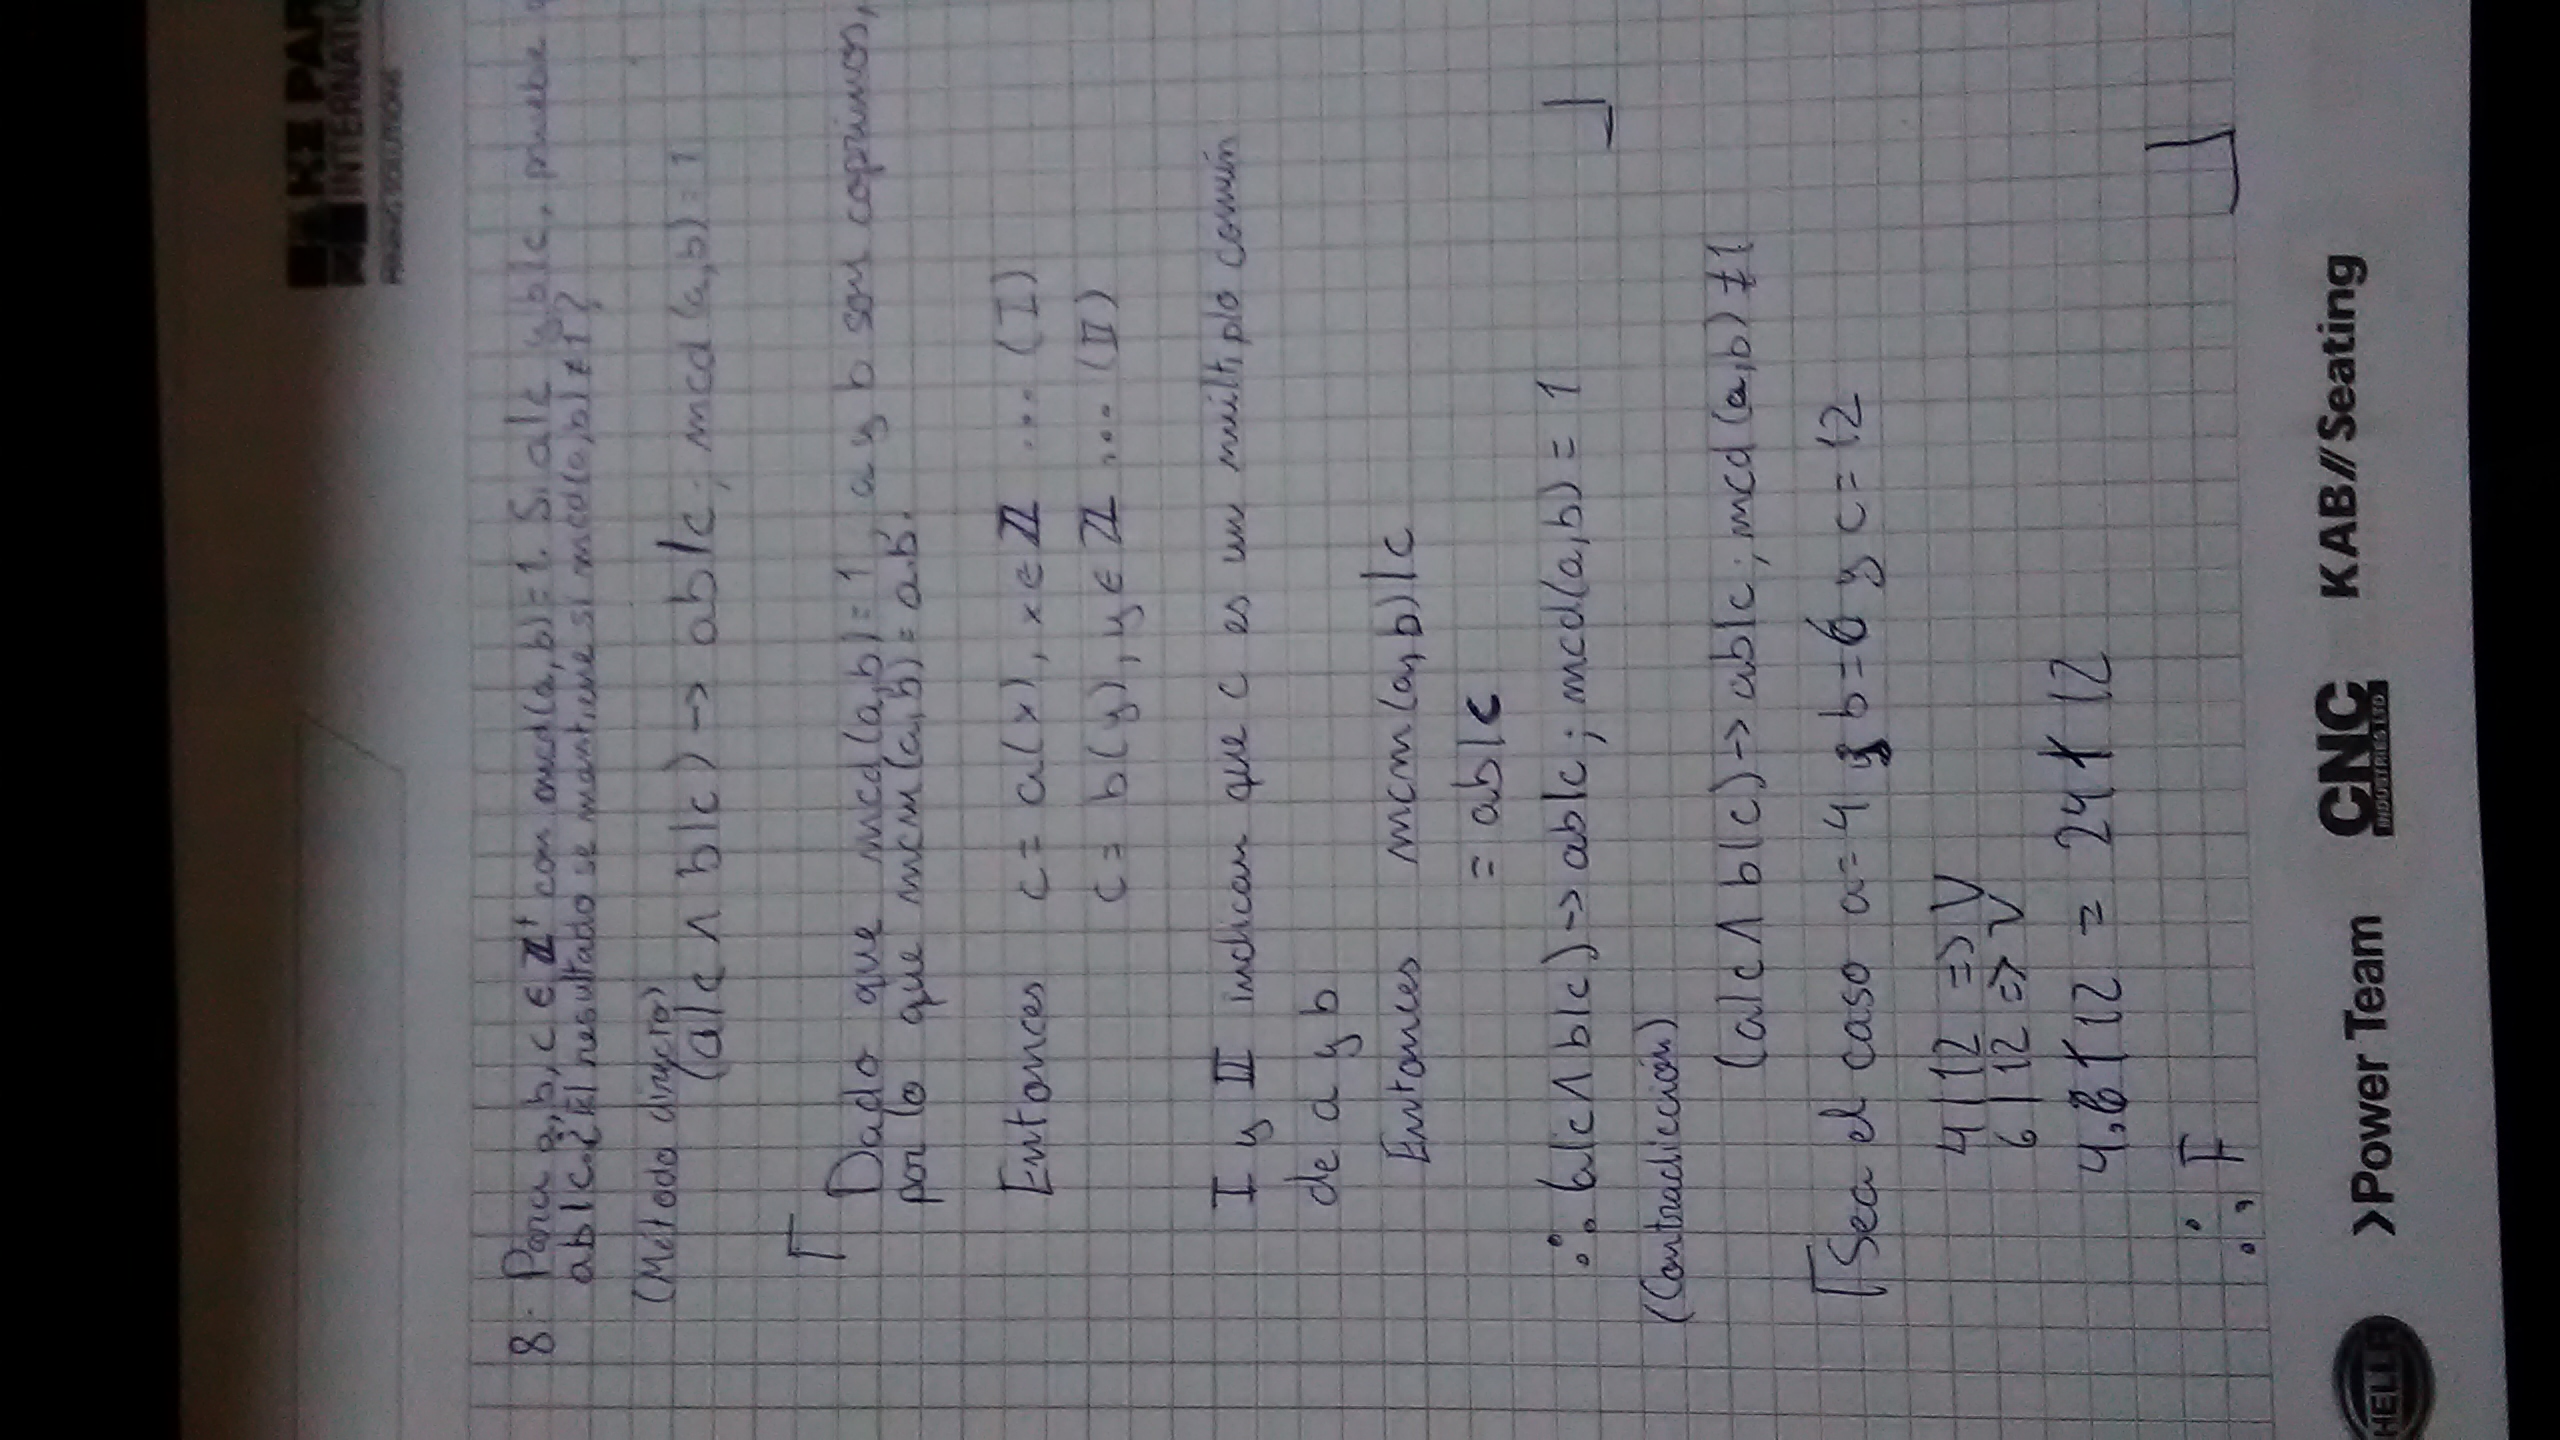 KE PAR
INTERNATIO
MINING SOLUTIONS
8. Para a, b, c ∈ Z⁺ con mcd(a, b) = 1. Si a|c y b|c, pruebe q
ab|c. ¿El resultado se mantiene si mcd(a, b) ≠ 1?
(Método directo)
(a|c ∧ b|c) -> ab|c; mcd (a, b) = 1
Dado que mcd(a, b) = 1, a y b son coprimos,
por lo que mcm(a, b) = a.b.
Entonces c = a(x), x ∈ Z ... (I)
c = b(y), y ∈ Z ... (II)
I y II indican que c es un múltiplo común
de a y b
Entonces mcm(a, b)|c
= ab|c
∴ (a|c ∧ b|c) -> ab|c; mcd(a, b) = 1
(Contradicción)
(a|c ∧ b|c) -> ab|c; mcd (a, b) ≠ 1
Sea el caso a = 4 y b = 6 y c = 12
4|12 => V
6|12 => V
4.6 ∤ 12 = 24 ∤ 12
∴ F
HELLA >Power Team CNC INDUSTRIES LTD KAB//Seating